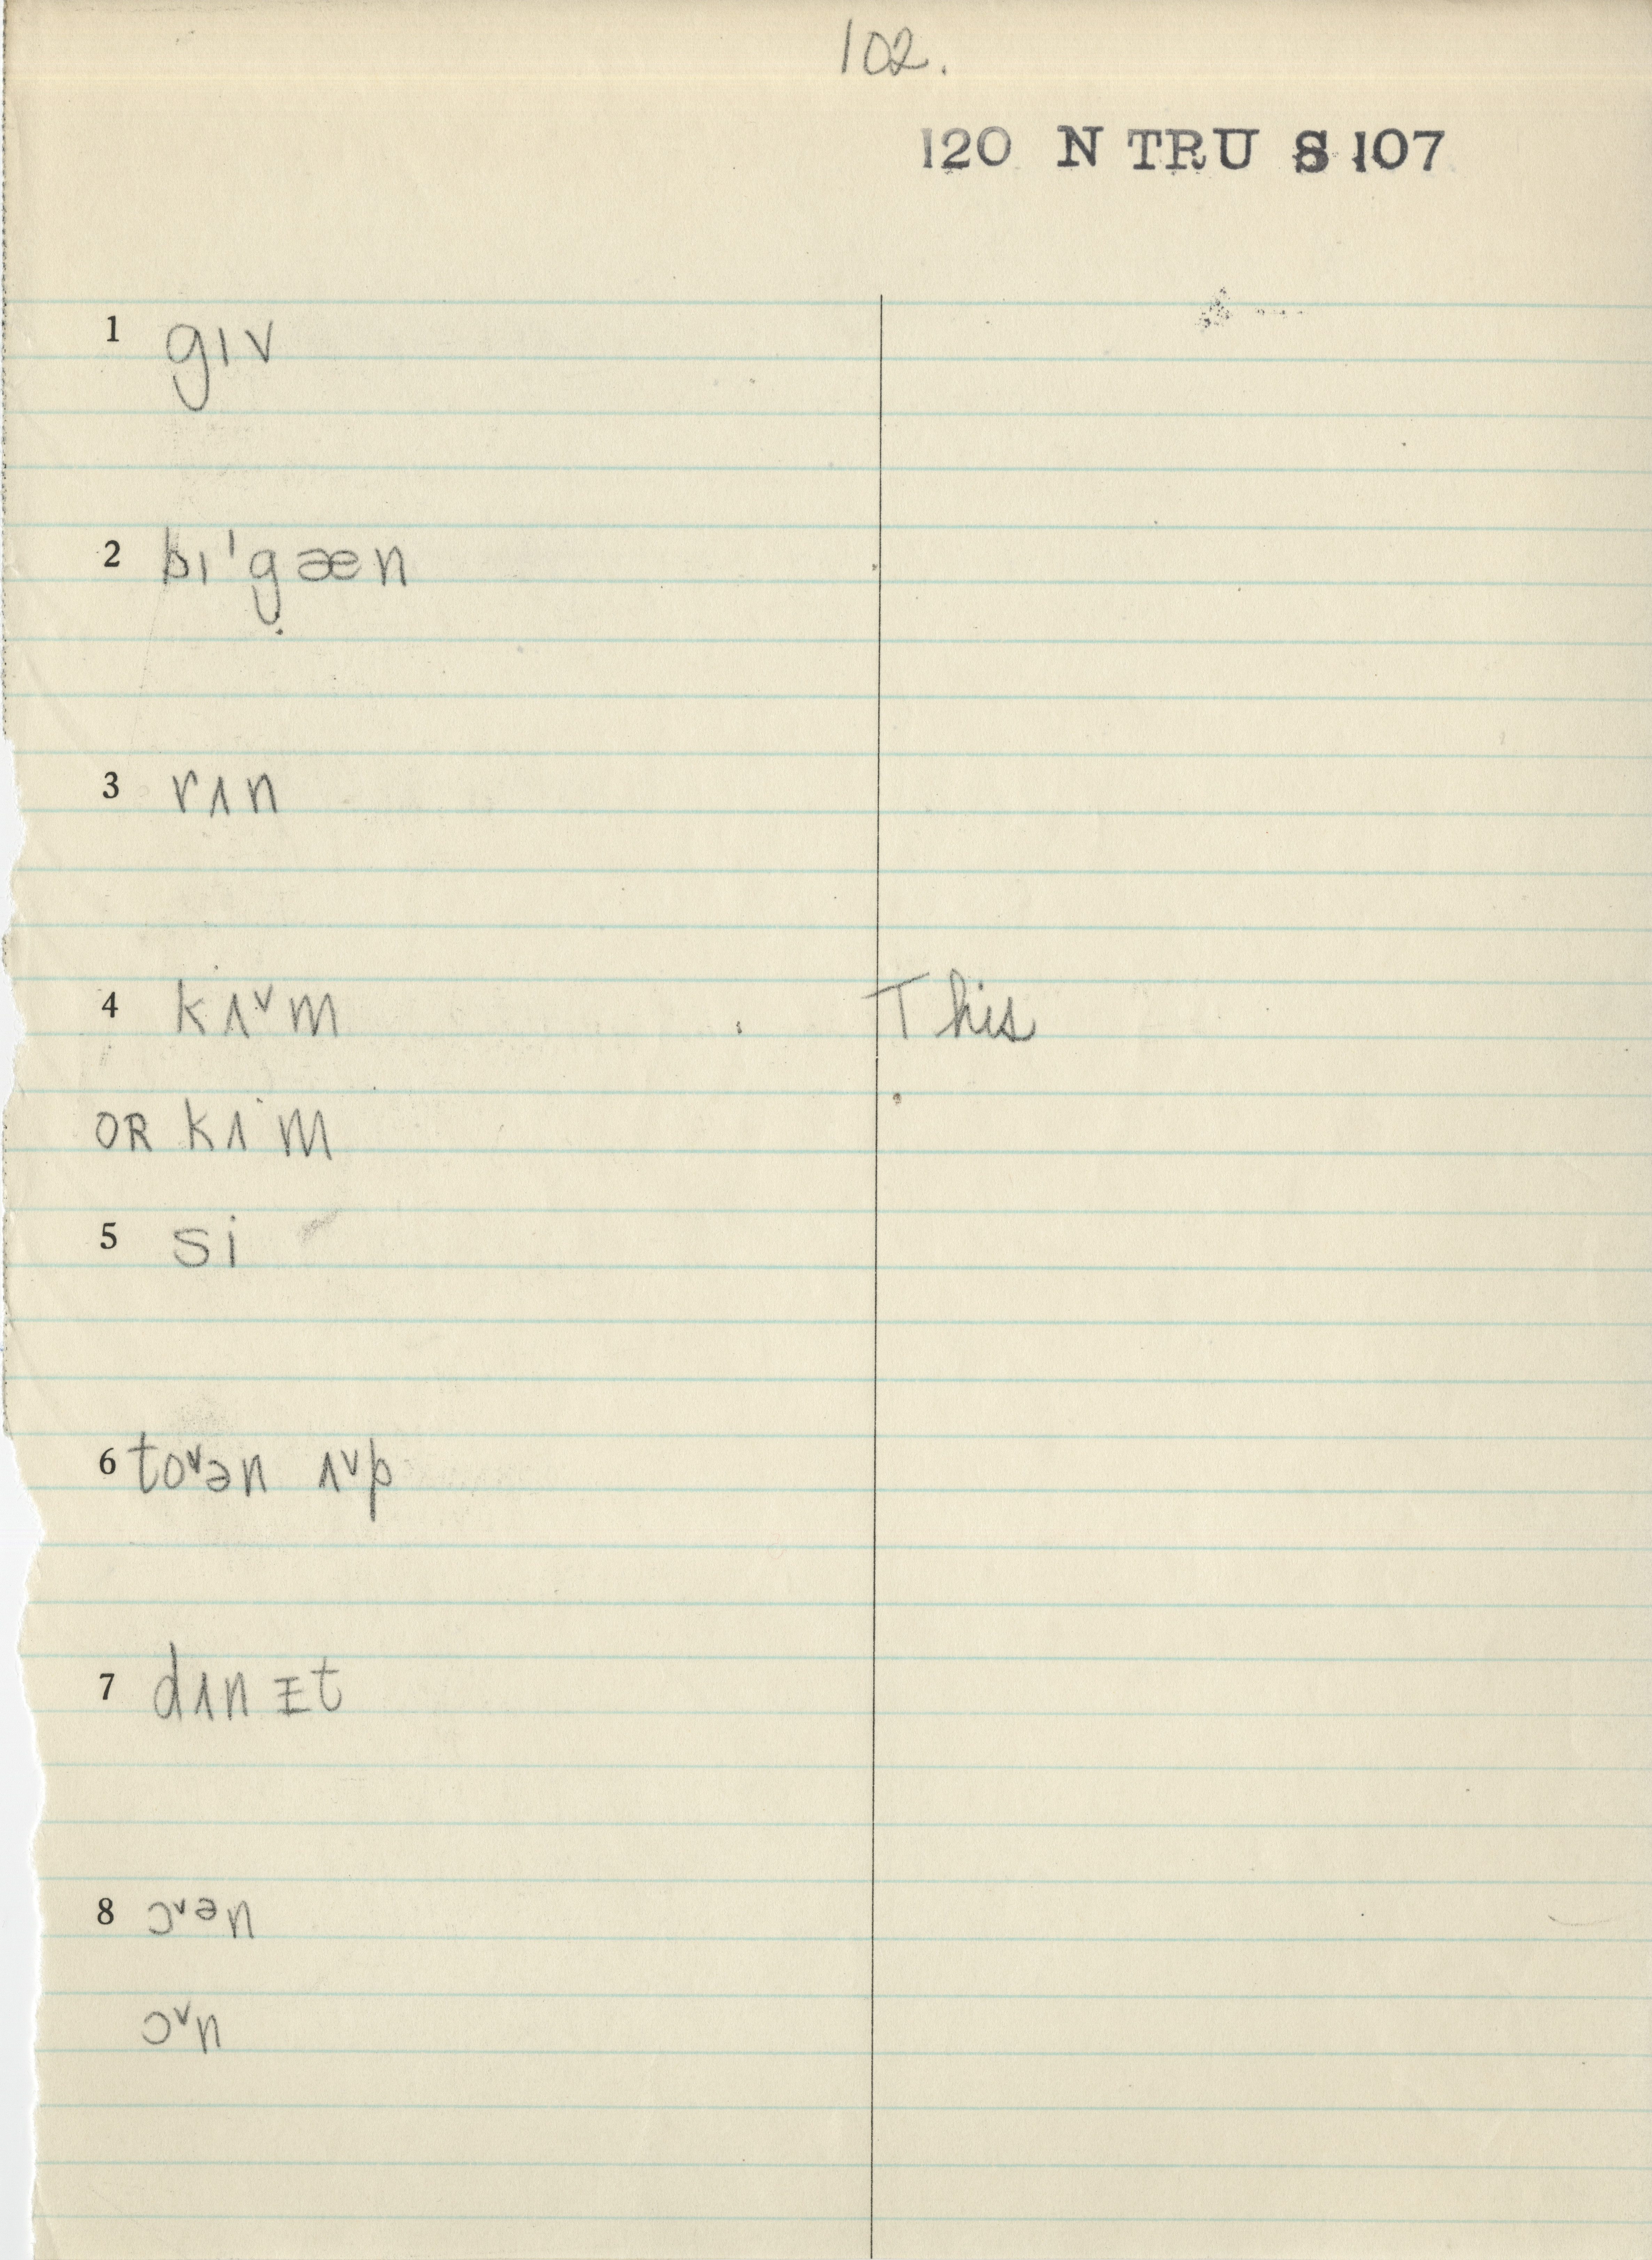 102.
120 N TRU S 107
1 gɪv
2 bɪ'gæn
3 rʌn
4 kʌ˅m This
OR kʌ·m
5 si
6 to˅ən ʌ˅p
7 dʌnɪt
8 ɔ˅ən
ɔ˅n